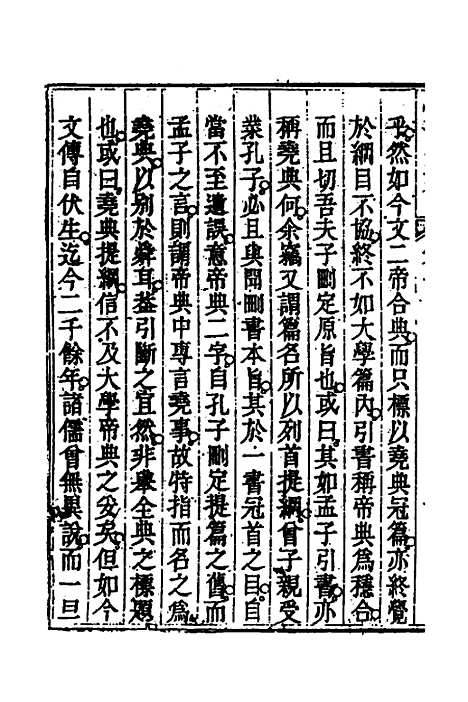 乎然如今文二帝合典而只標以堯典冠篇亦終覺
於綱目不協終不如大學篇內引書稱帝典為穩合
而且切吾夫子刪定原旨也或曰其如孟子引書亦
稱堯典何余竊又謂篇名所以列首提綱曾子親受
業孔子必且與聞刪書本旨其於一書冠首之目自
當不至遺誤意帝典二字自孔子刪定提篇之舊而
孟子之言則謂帝典中專言堯事故特指而名之為
堯典以別於舜耳葢引斷之宜然非舉全典之標題
也或曰堯典提綱信不及大學帝典之妥矣但如今
文傳自伏生迄今二千餘年諸儒曾無異說而一旦